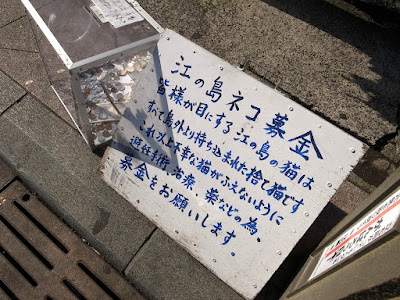 江の島ネコ募金
皆様が目にする江の島の猫は
すべて島外より持ち込まれた捨て猫です
これ以上不幸な猫がふえないように
避妊手術、治療、薬などの為、
募金をお願いします。